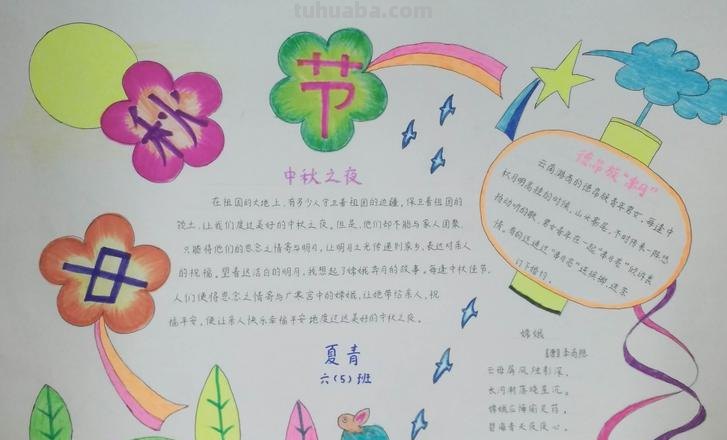 tuhuaba.com
中
秋
节
中秋之夜
在祖国的大地上，有多少人守卫着祖国的边疆，保卫着祖国的
领土，让我们度过美好的中秋之夜。但是，他们却不能与家人团聚，
只能将他们的思念之情寄与明月，让明月之光传递到家乡，表达对亲人
的祝福。望着这洁白的明月，我想起了嫦娥奔月的故事。每逢中秋佳节，
人们便将思念之情寄与广寒宫中的嫦娥，让她带给亲人，祝
福平安，便让亲人快乐幸福平安地度过这美好的中秋之夜。
夏青
六（5）班
德昂族“串月”
云南潞西的德昂族青年男女，每逢中
秋月明高挂的时候，山头寨尾，不时传来一阵悠
扬动听的歌，男女青年在一起“串月亮”倾诉衷
情。有的还通过“串月亮”送槟榔，送茶
订下婚约。
嫦娥
【唐】李商隐
云母屏风烛影深，
长河渐落晓星沉。
嫦娥应悔偷灵药，
碧海青天夜夜心。